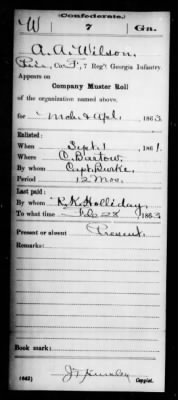 Confederate.
W 7 Ga.
A. A. Wilson
Co. F, 7 Reg't Georgia Infantry
Appears on
Company Muster Roll
of the organization named above,
for Mch & Apl, 1863
Enlisted:
When Sept. 1, 1861
Where C. Bartow
By whom Capt. Burke
Period 12 Mos.
Last paid:
By whom R. K. Holliday
To what time Feb 28, 1863
Present or absent Present
Remarks:
Book mark:
(642) Copyist.